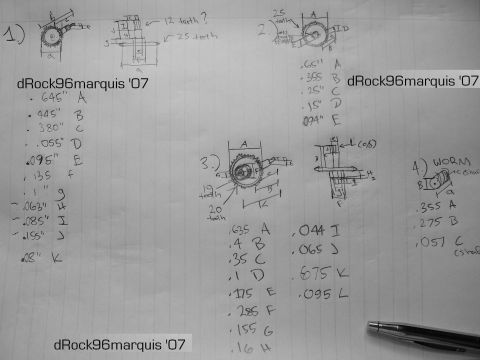 1)
12 teeth?
25 teeth
dRock96marquis '07
.645" A
.445" B
.380" C
.055" D
.095" E
.135 F
.1" g
~.063" H
~.085" I
~.155" J
.28" K
2.
25 teeth
.65" A
.355 B
.25" C
.15" D
.094" E
dRock96marquis '07
3.)
A
19 teeth
20 teeth
K
L
F
.635 A
.4 B
.35 C
.1 D
.175 E
.285 F
.155 G
.16 H
.044 I
.065 J
.875 K
.095 L
4) WORM
B
a
.355 A
.275 B
.057 C
dRock96marquis '07